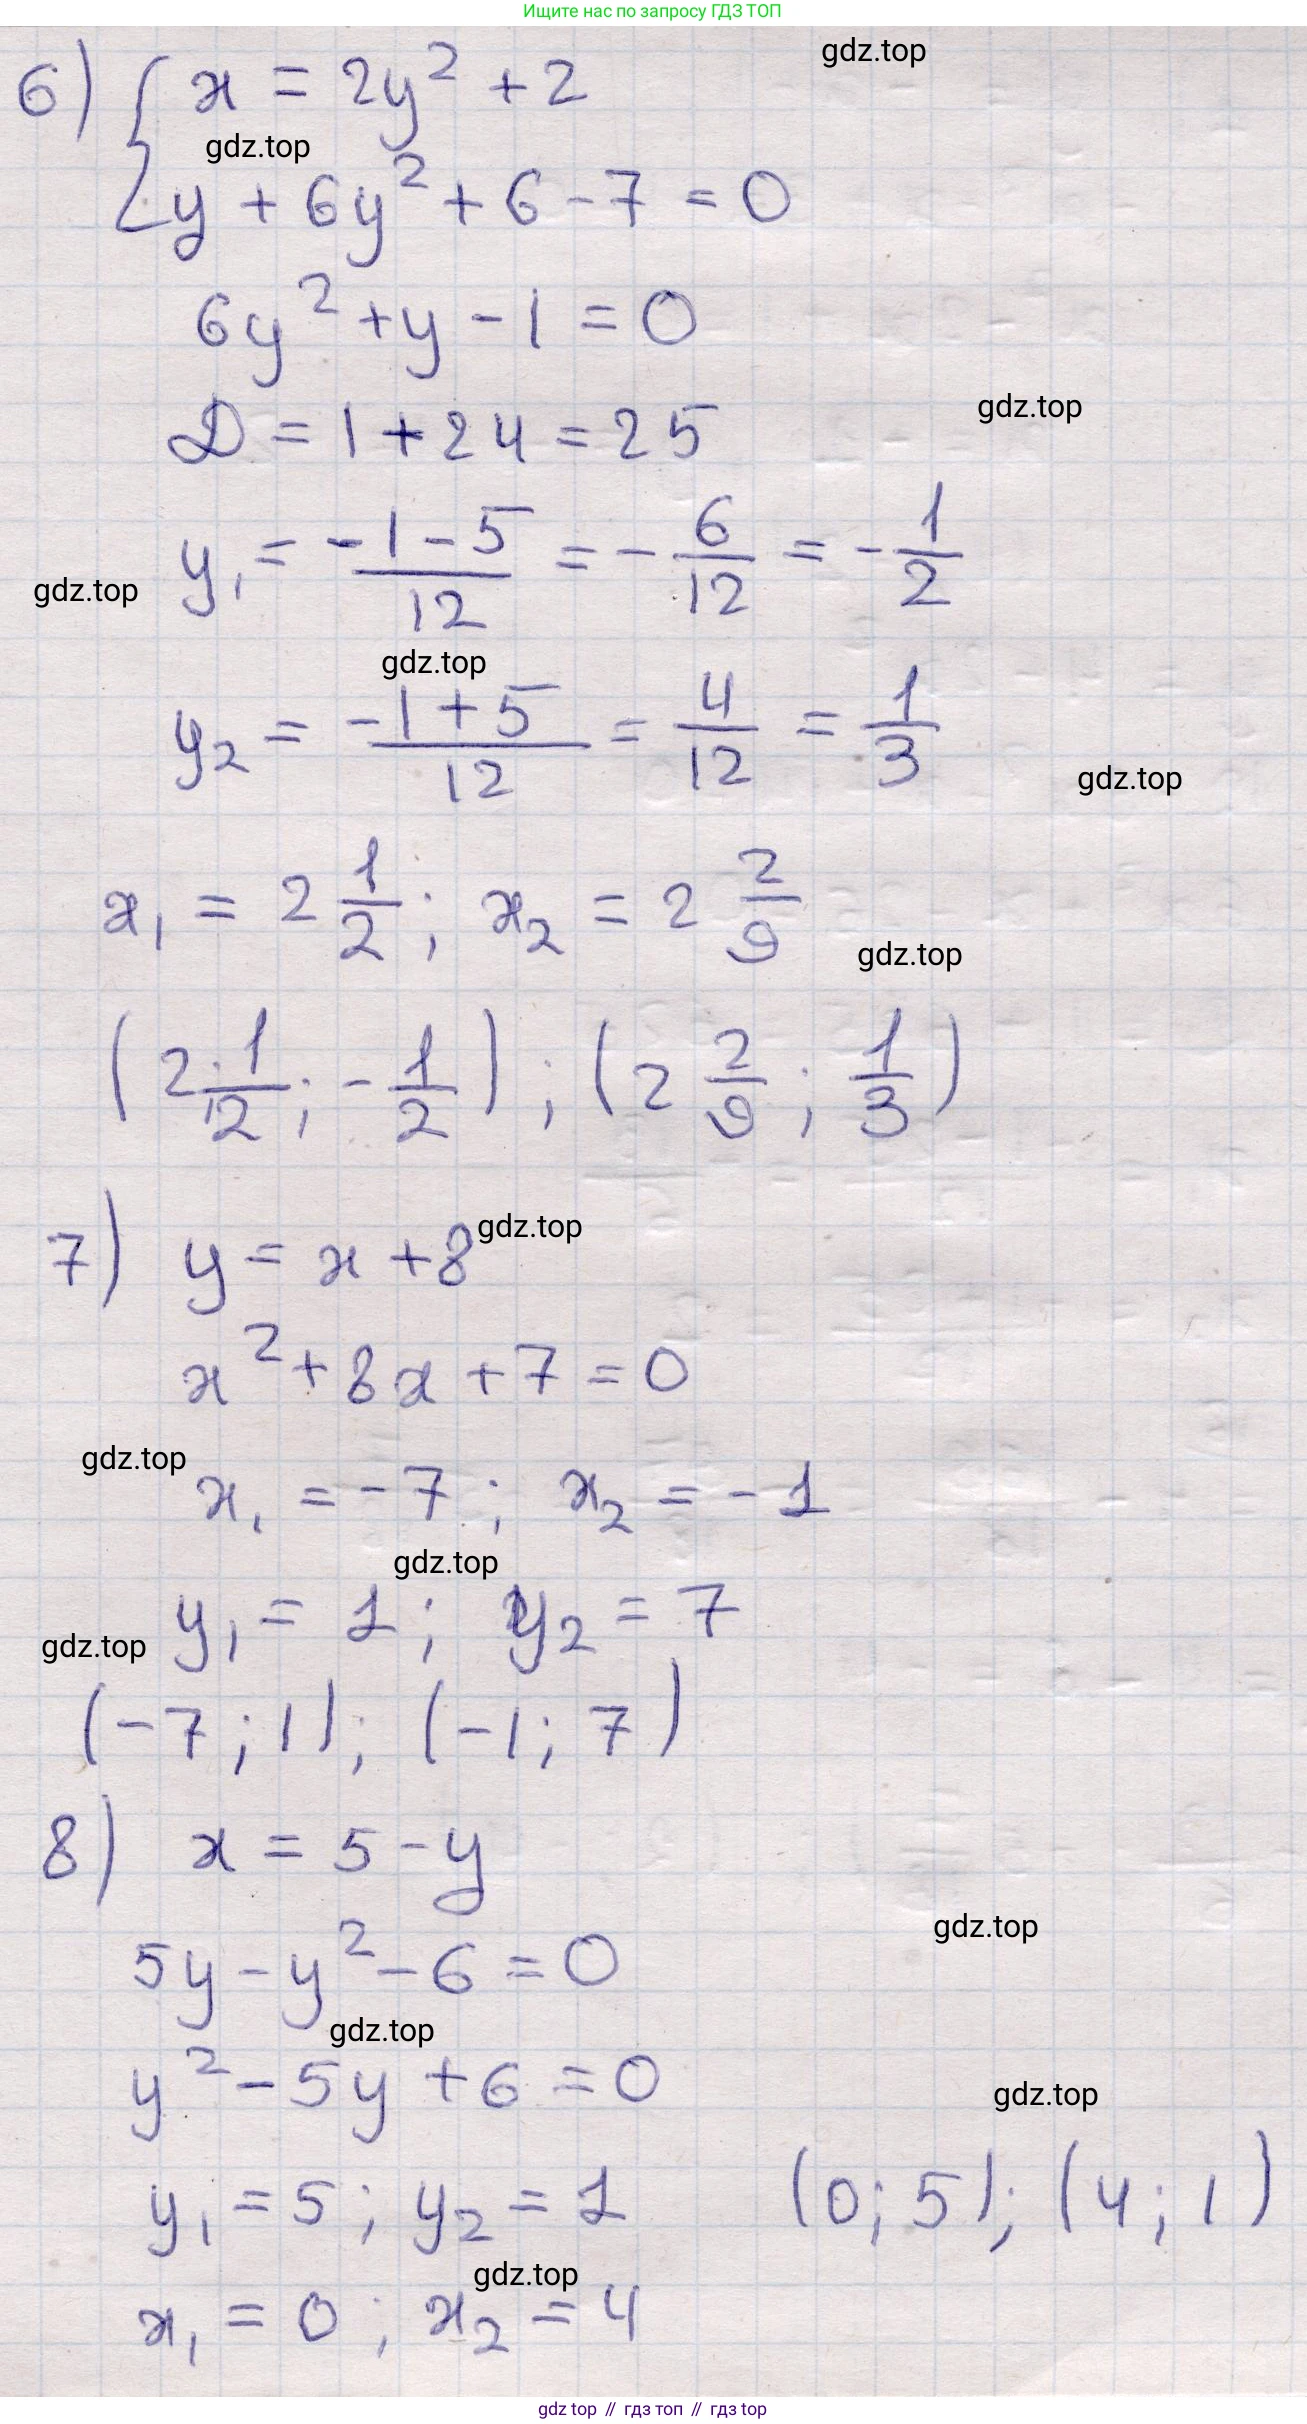 Ищите нас по запросу ГДЗ ТОП
gdz.top
6) { x = 2y² + 2
gdz.top
y + 6y² + 6 - 7 = 0
6y² + y - 1 = 0
gdz.top
D = 1 + 24 = 25
y₁ = (-1 - 5)/12 = -6/12 = -1/2
gdz.top
gdz.top
y₂ = (-1 + 5)/12 = 4/12 = 1/3
gdz.top
x₁ = 2 1/2 ; x₂ = 2 2/9
gdz.top
(2 1/2 ; -1/2) ; (2 2/9 ; 1/3)
gdz.top
7) y = x + 8
x² + 8x + 7 = 0
gdz.top
x₁ = -7 ; x₂ = -1
gdz.top
y₁ = 1 ; y₂ = 7
gdz.top
(-7 ; 1) ; (-1 ; 7)
8) x = 5 - y
gdz.top
5y - y² - 6 = 0
gdz.top
y² - 5y + 6 = 0
gdz.top
y₁ = 5 ; y₂ = 1 (0 ; 5) ; (4 ; 1)
gdz.top
x₁ = 0 ; x₂ = 4
gdz top // гдз топ // гдз top